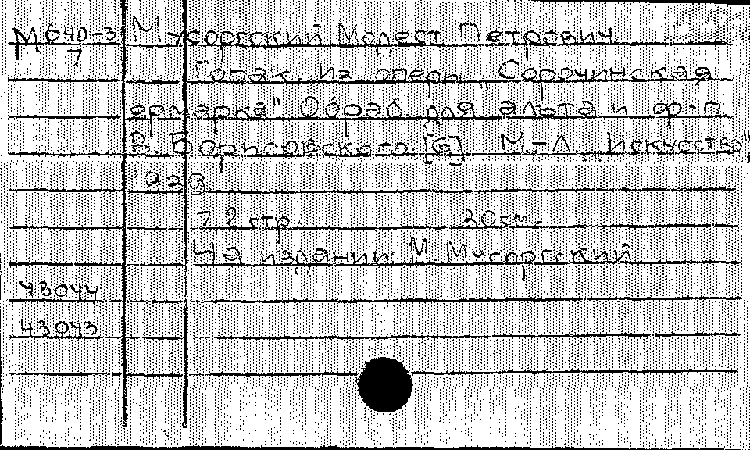 М640-3 Мусоргский Модест Петрович
7
Гопак. Из оперы „Сорочинская
ярмарка" Обраб. для альта и ф-п.
В. Борисовского. [Б] М.-Л. Искусство
193
2 стр. 20 см.
На издании: М. Мусоргский
43044
43043